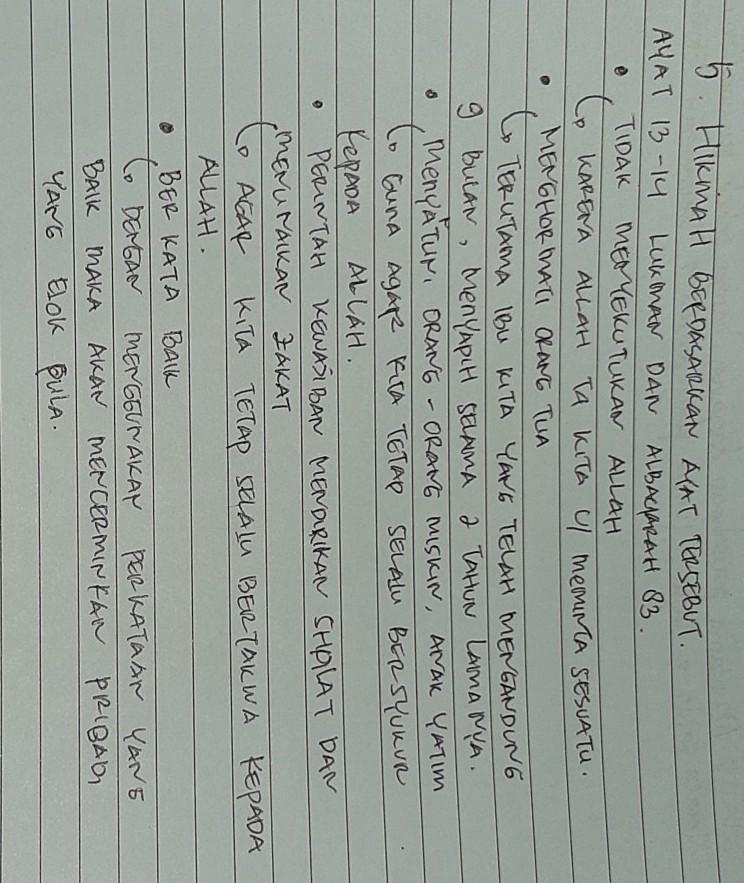 5. HIKMAH BERDASARKAN AYAT TERSEBUT.
AYAT 13-14 LUKMAN DAN ALBAQARAH 83.
• TIDAK MENYEKUTUKAN ALLAH
↳ KARENA ALLAH TA KITA U/ MEMINTA SESUATU.
• MENGHORMATI ORANG TUA
↳ TERUTAMA IBU KITA YANG TELAH MENGANDUNG
9 BULAN, MENYAPIH SELAMA 2 TAHUN LAMANYA.
• MENYATUNI ORANG-ORANG MISKIN, ANAK YATIM
↳ GUNA AGAR KITA TETAP SELALU BERSYUKUR
KEPADA ALLAH.
• PERINTAH KEWAJIBAN MENDIRIKAN SHOLAT DAN
MENUNAIKAN ZAKAT
↳ AGAR KITA TETAP SELALU BERTAKWA KEPADA
ALLAH.
• BERKATA BAIK
↳ DENGAN MENGGUNAKAN PERKATAAN YANG
BAIK MAKA AKAN MENCERMINKAN PRIBADI
YANG ELOK PULA.